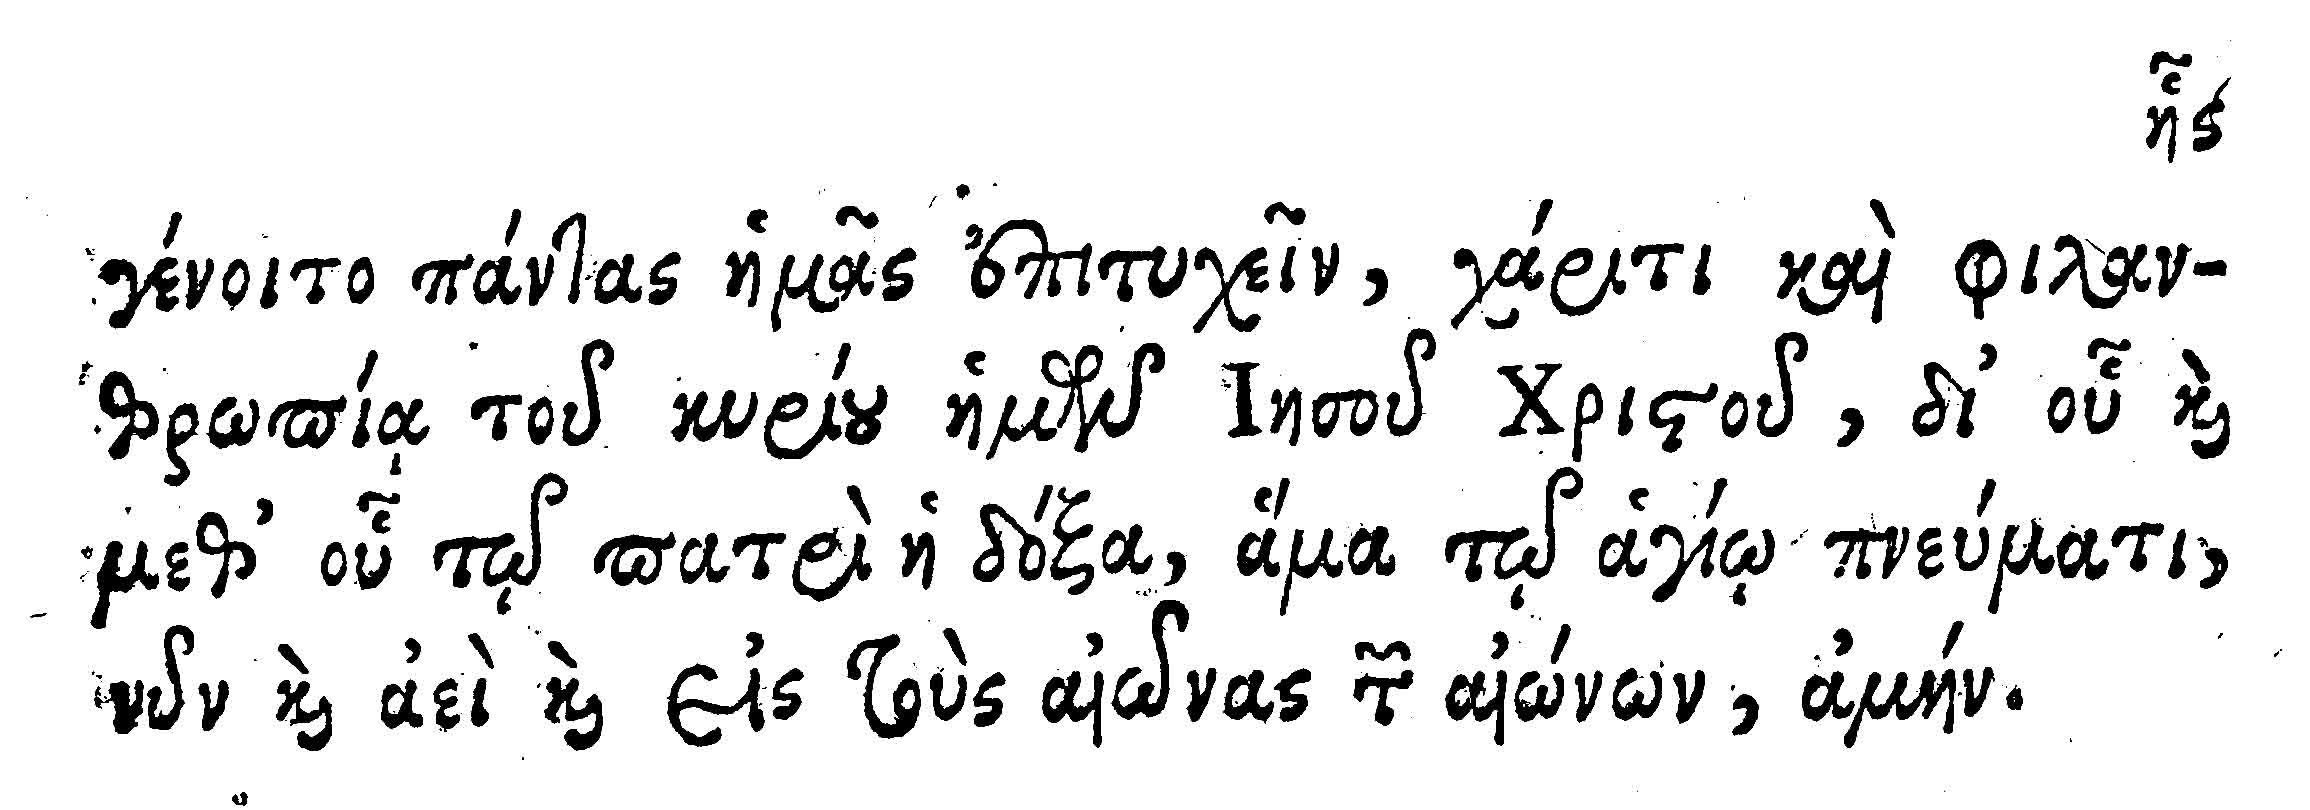 ἧς
γένοιτο πάντας ἡμᾶς ἐπιτυχεῖν, χάριτι καὶ φιλαν-
θρωπίᾳ τοῦ κυρίου ἡμῶν Ἰησοῦ Χριστοῦ, δι' οὗ καὶ
μεθ' οὗ τῷ πατρὶ ἡ δόξα, ἅμα τῷ ἁγίῳ πνεύματι,
νῦν καὶ ἀεὶ καὶ εἰς τοὺς αἰῶνας τῶν αἰώνων, ἀμήν.